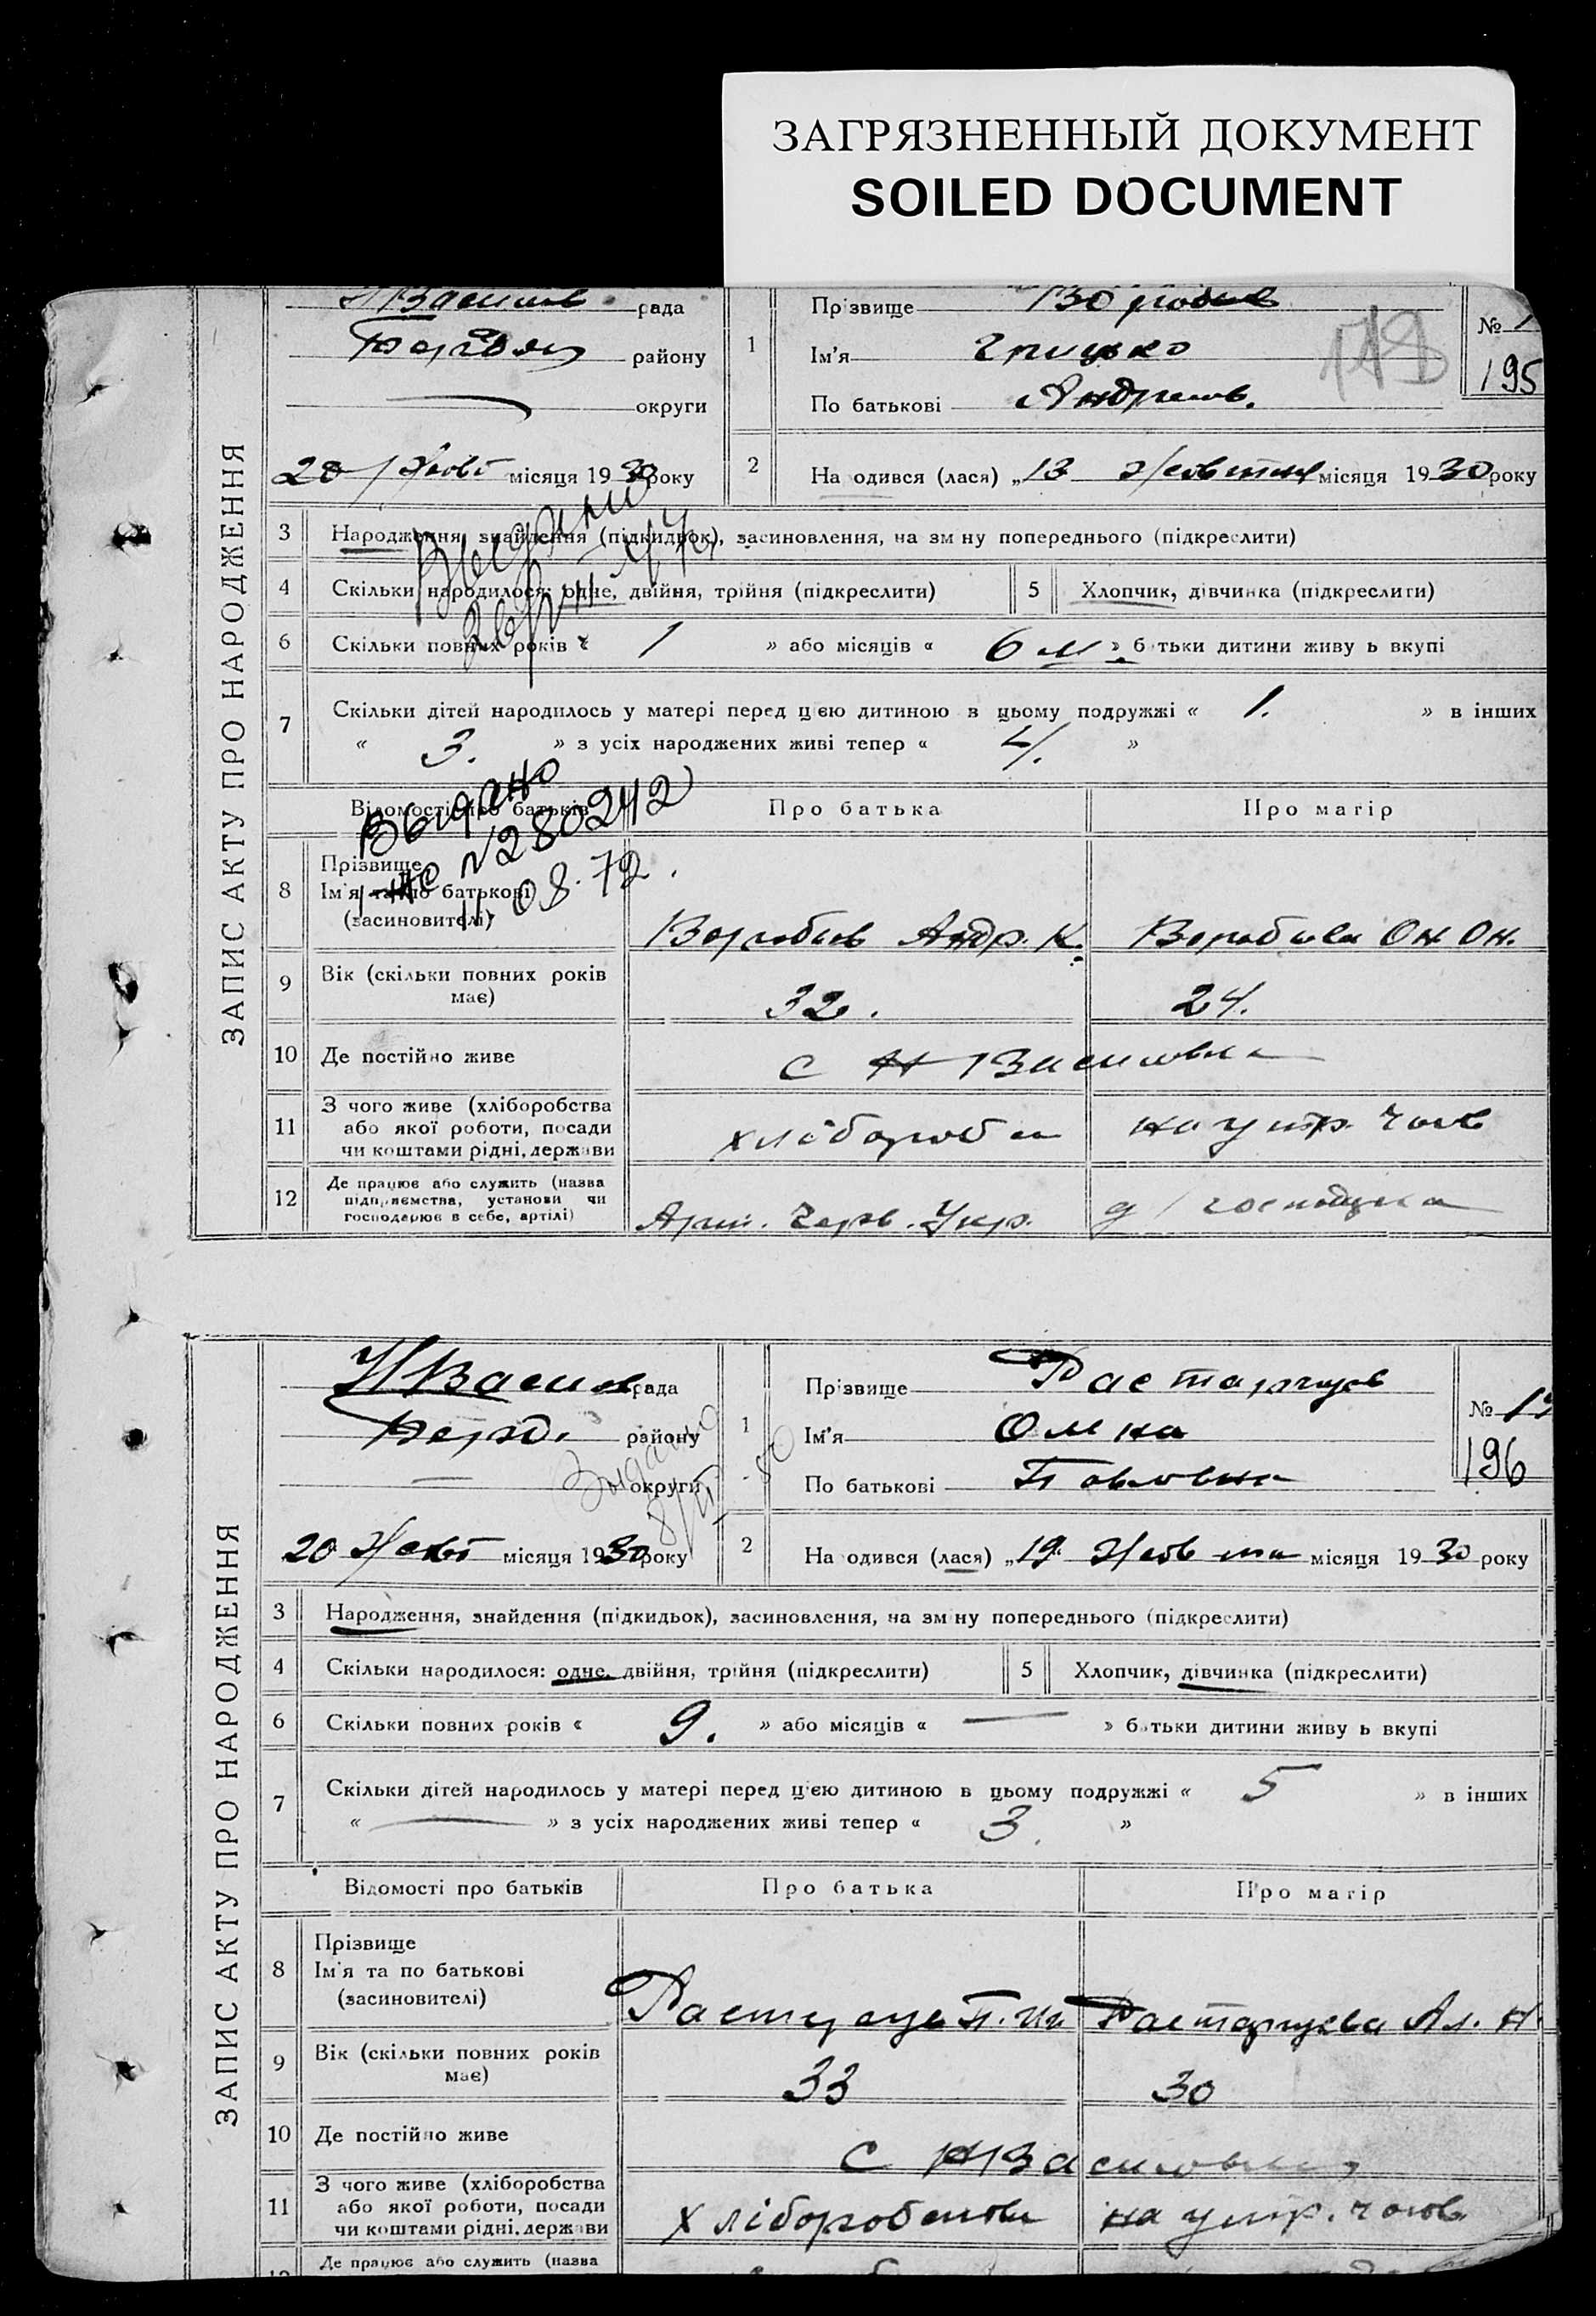 ЗАГРЯЗНЕННЫЙ ДОКУМЕНТ
SOILED DOCUMENT
ЗАПИС АКТУ ПРО НАРОДЖЕННЯ
НВасилів рада
району
округи
20 Жовт місяця 1930 року
1
Прізвище Воробьев
Ім'я Грицько
По батькові Андреев.
№ 1
195
2 Народився (лася) „13 Жовтня місяця 1930 року
3 Народження, знайдення (підкидьок), засиновлення, на зміну попереднього (підкреслити)
4 Скільки народилося: одне, двійня, трійня (підкреслити) 5 Хлопчик, дівчинка (підкреслити)
6 Скільки повних років « 1 » або місяців « 6 м » батьки дитини живуть вкупі
7 Скільки дітей народилось у матері перед цією дитиною в цьому подружжі « 1. » в інших
« 3. » з усіх народжених живі тепер « 4. »
Выдано
№280242
11.08.72.
Відомості про батьків Про батька Про матір
8 Прізвище
Ім'я та по батькові
(засиновителі)
Воробьев Андр. К. Воробьева Он Он.
9 Вік (скільки повних років має) 32. 24.
10 Де постійно живе с Н Василовка
11 З чого живе (хліборобства
або якої роботи, посади
чи коштами рідні, держави
на утр. чолов
12 Де працює або служить (назва
підприємства, установи чи
господарює в себе, артілі)
Арт. Черв. Укр. д/господарка
ЗАПИС АКТУ ПРО НАРОДЖЕННЯ
НВасилів рада
Берд. району
округи
Выдано
20 Жовт місяця 1930 року
1
Прізвище Растаргуев
Ім'я
По батькові Павловна
№ 1
196
2 Народився (лася) „19. Жовтня місяця 1930 року
3 Народження, знайдення (підкидьок), засиновлення, на зміну попереднього (підкреслити)
4 Скільки народилося: одне, двійня, трійня (підкреслити) 5 Хлопчик, дівчинка (підкреслити)
6 Скільки повних років « 9. » або місяців « — » батьки дитини живуть вкупі
7 Скільки дітей народилось у матері перед цією дитиною в цьому подружжі « 5 » в інших
« — » з усіх народжених живі тепер « 3. »
Відомості про батьків Про батька Про матір
8 Прізвище
Ім'я та по батькові
(засиновителі)
Растаргуева Ал. Н.
9 Вік (скільки повних років має) 33 30
10 Де постійно живе с НВасиловка
11 З чого живе (хліборобства
або якої роботи, посади
чи коштами рідні, держави
хліборобство на утр. чолов.
Де працює або служить (назва